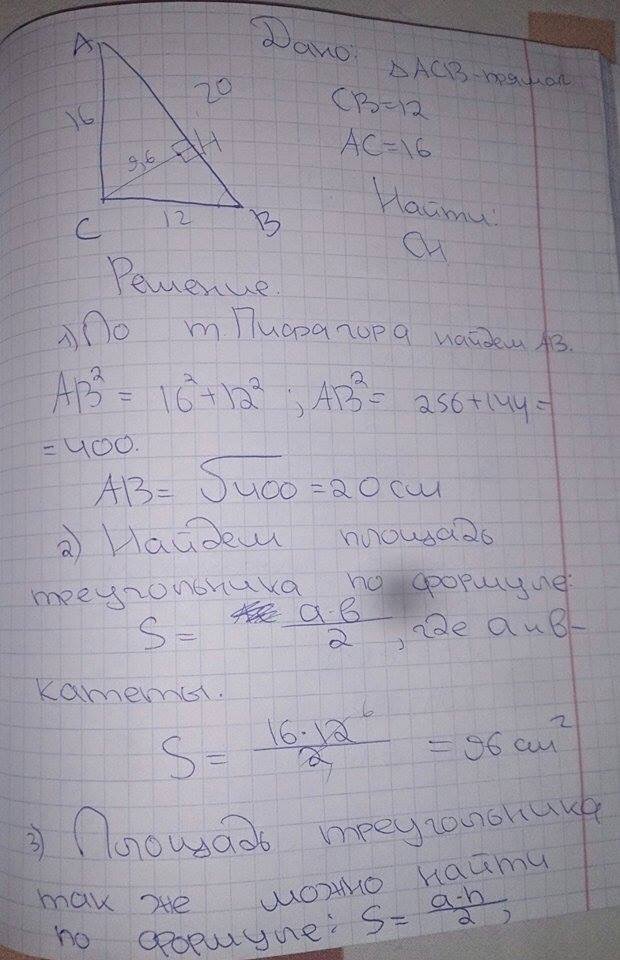 Дано:
A
△ACB-прямог
20
CB=12
16
AC=16
H
9,6
Найти:
C
12
B
CH
Решение.
1) По т. Пифагора найдем AB.
AB² = 16²+12² ; AB² = 256+144=
=400.
AB= √400 =20 см
2) Найдем площадь
треугольника по формуле:
S = a·в/2, где a и в-
катеты.
S = 16·12⁶/2 = 96 см²
3) Площадь треугольника
так же можно найти
по формуле: S= a·h/2;